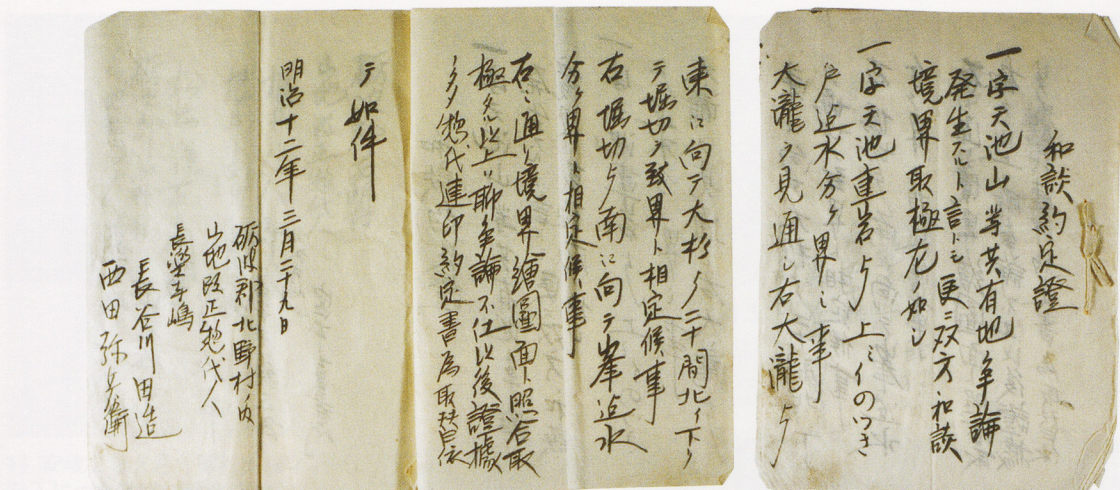 和談約定證
一字天池山等共有地争論
発生スルト言トモ更ニ双方和談
境界取極左ノ如し
一字天池重岩ゟ上ミイのつき
戸迠水分ケ界ミ事
大瀧ヲ見通し右大瀧ゟ
東江向テ大杉ゟ二十間北イ下り
テ堀切ヲ致界ト相定候事
右堀切ゟ南江向テ峯迠水
分ケ界ト相定候事
右之通り境界繪圖面ト照合取
極タル以上ハ聊争論不仕以後證據
惣代連印約定書為取替依
テ如件
明治十二年三月二十九日
砺波郡北野村
山地改正惣代人
長嶋
長谷川田造
西田弥兵衛